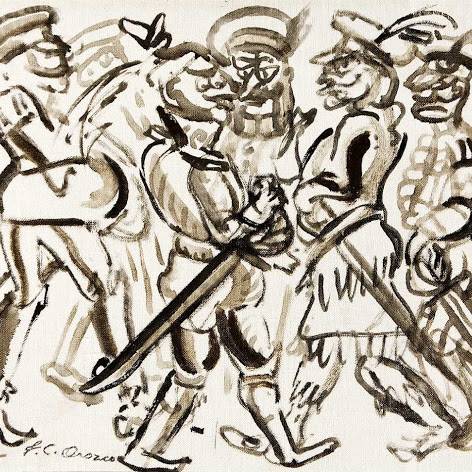 J. C. Orozco